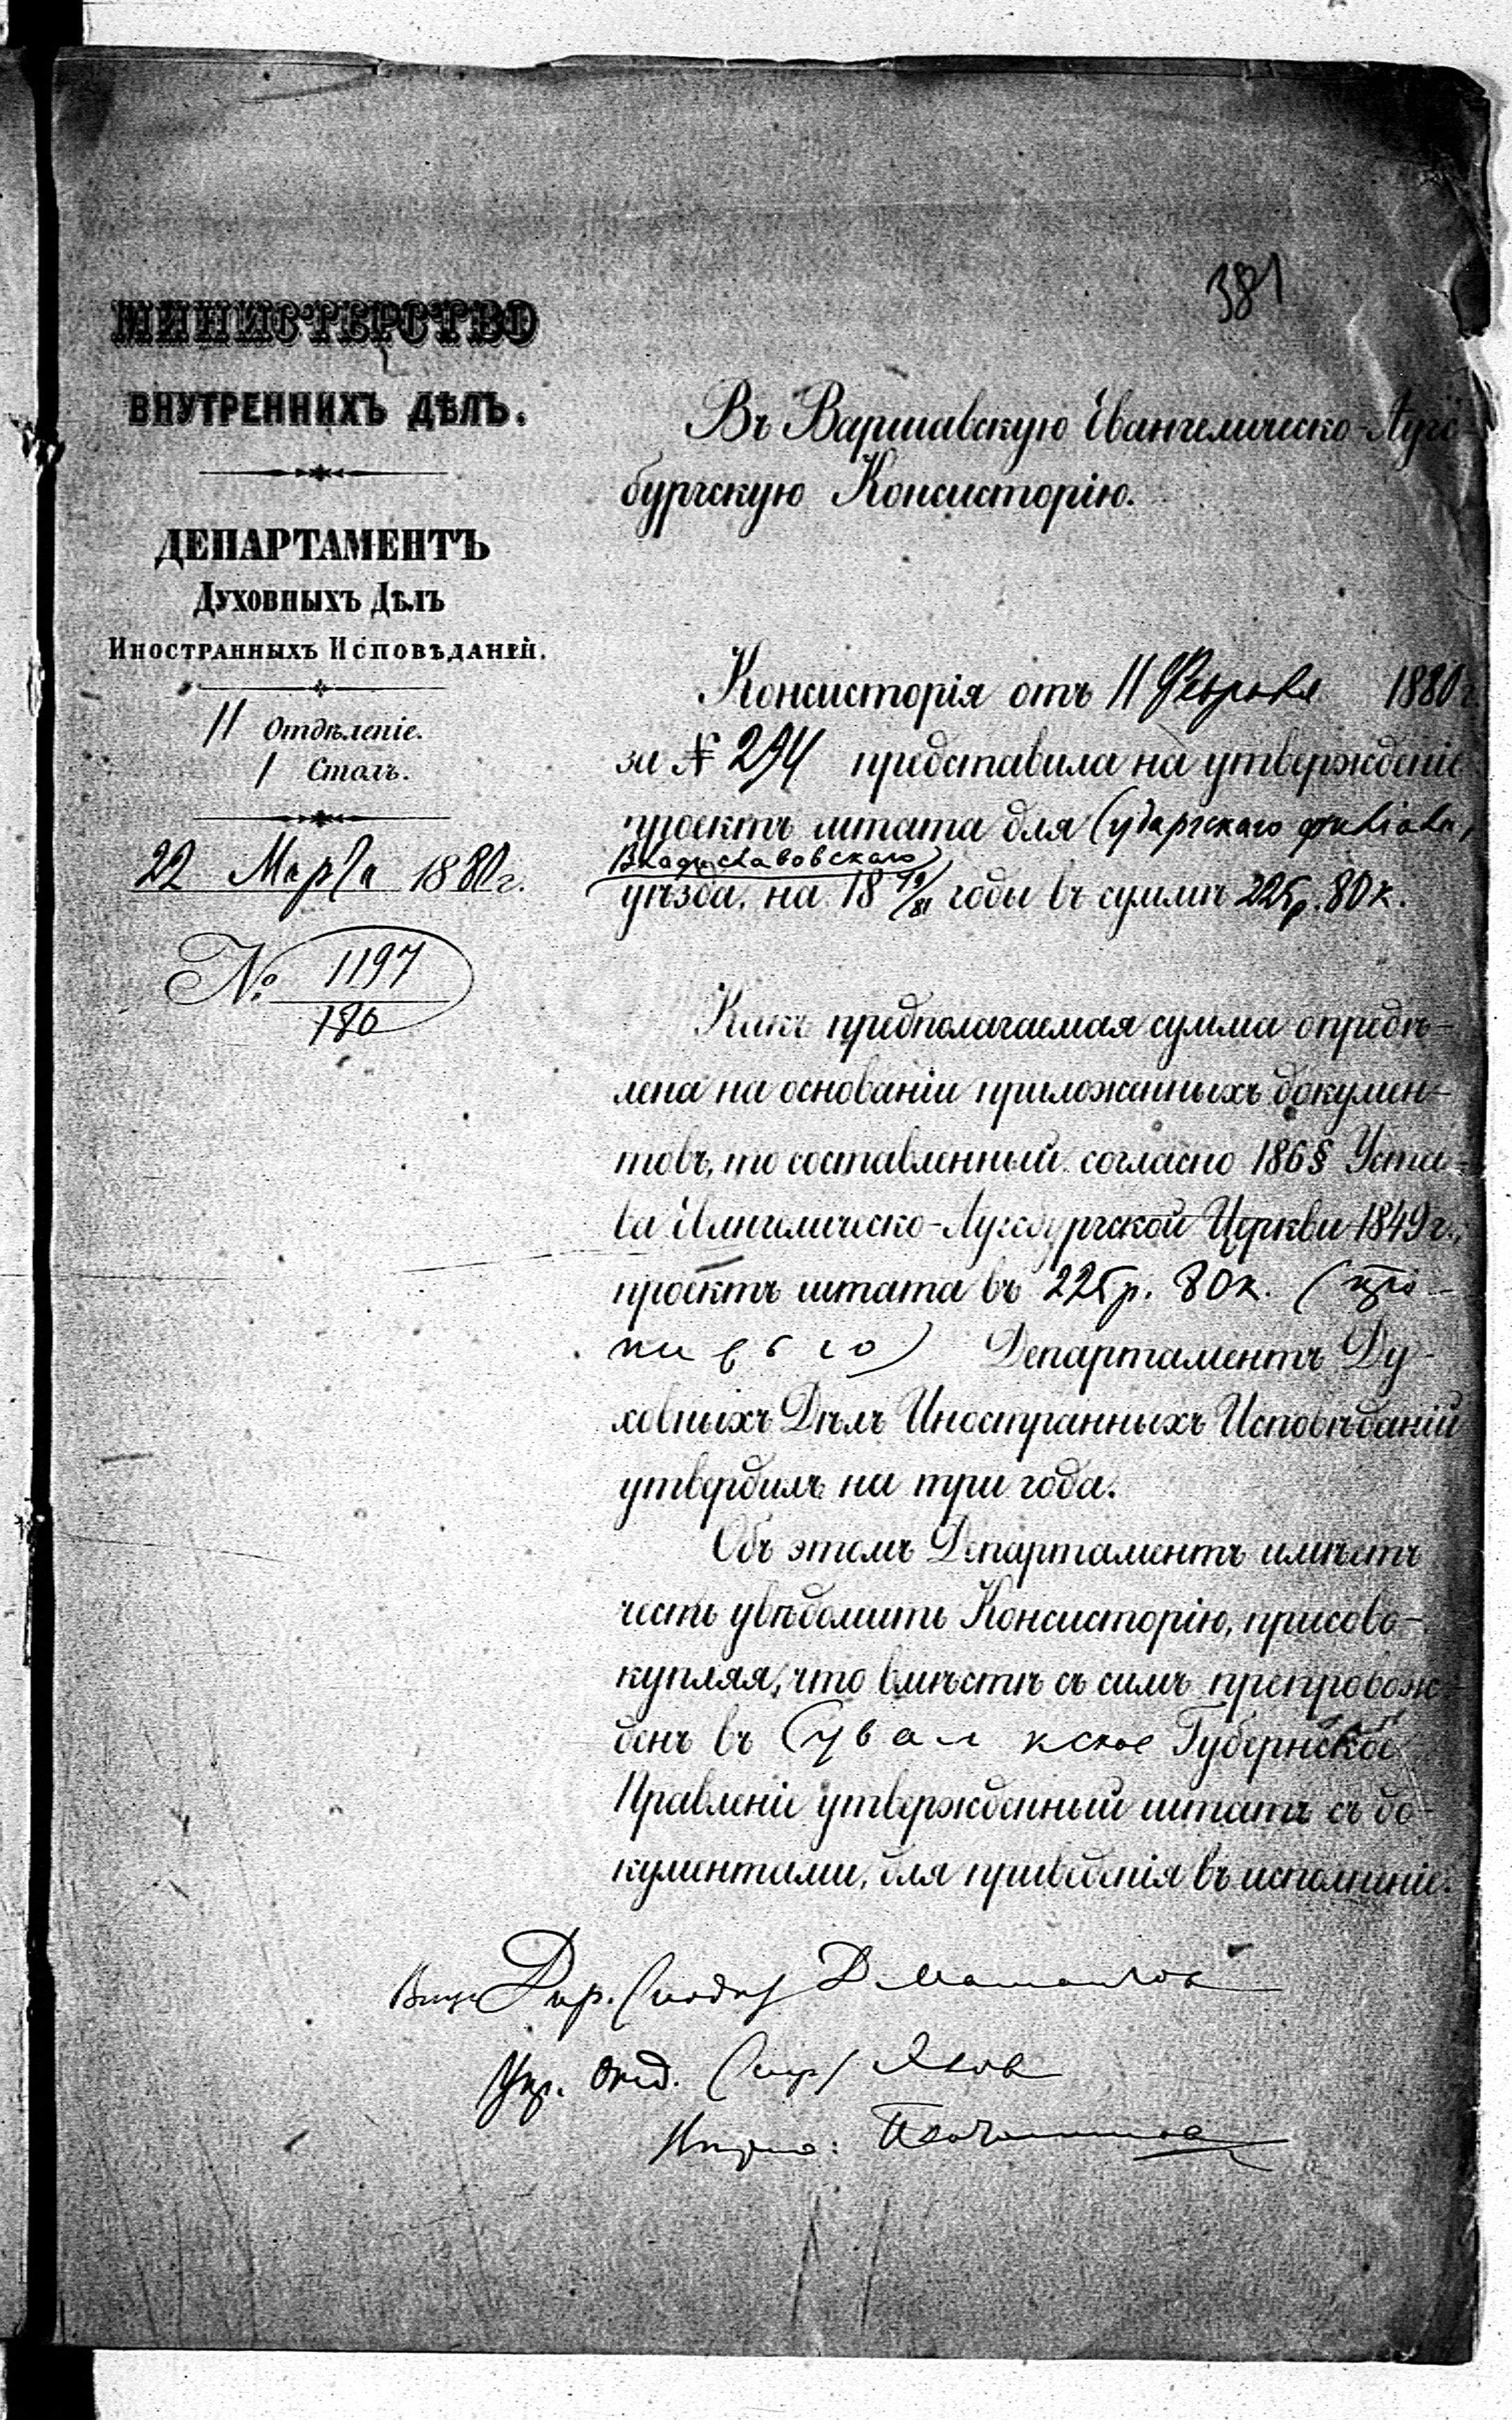 381
МИНИСТЕРСТВО
ВНУТРЕННИХЪ ДѢЛЪ.
ДЕПАРТАМЕНТЪ
ДУХОВНЫХЪ ДѢЛЪ
ИНОСТРАННЫХЪ ИСПОВѢДАНІЙ.
II Отдѣленіе.
1 Столъ.
22 Марта 1880 г.
№ 1197
180
Въ Варшавскую Евангелическо-Аугс
бургскую Консисторію.
Консисторія отъ 11 Февраля 1880 г.
за № 294 представила на утвержденіе
проектъ штата для Сударгскаго филіала,
Владиславовскаго
уѣзда, на 18 79/81 годы въ суммѣ 225 р. 80 к.
Какъ предполагаемая сумма опредѣ-
лена на основаніи приложенныхъ докумен-
товъ, то составленный согласно 186 § Уста-
ва Евангелическо-Аугсбургской Церкви 1849 г.,
проектъ штата въ 225 р. 80 к.
Департаментъ Ду-
ховныхъ Дѣлъ Иностранныхъ Исповѣданій
утвердилъ на три года.
Объ этомъ Департаментъ имѣетъ
честь увѣдомить Консисторію, присово-
купляя, что вмѣстѣ съ симъ препровож-
денъ въ Сувалкское Губернское
Правленіе утвержденный штатъ съ до-
кументами, для приведенія въ исполненіе.
Вице Дир.
Упр. Отд.